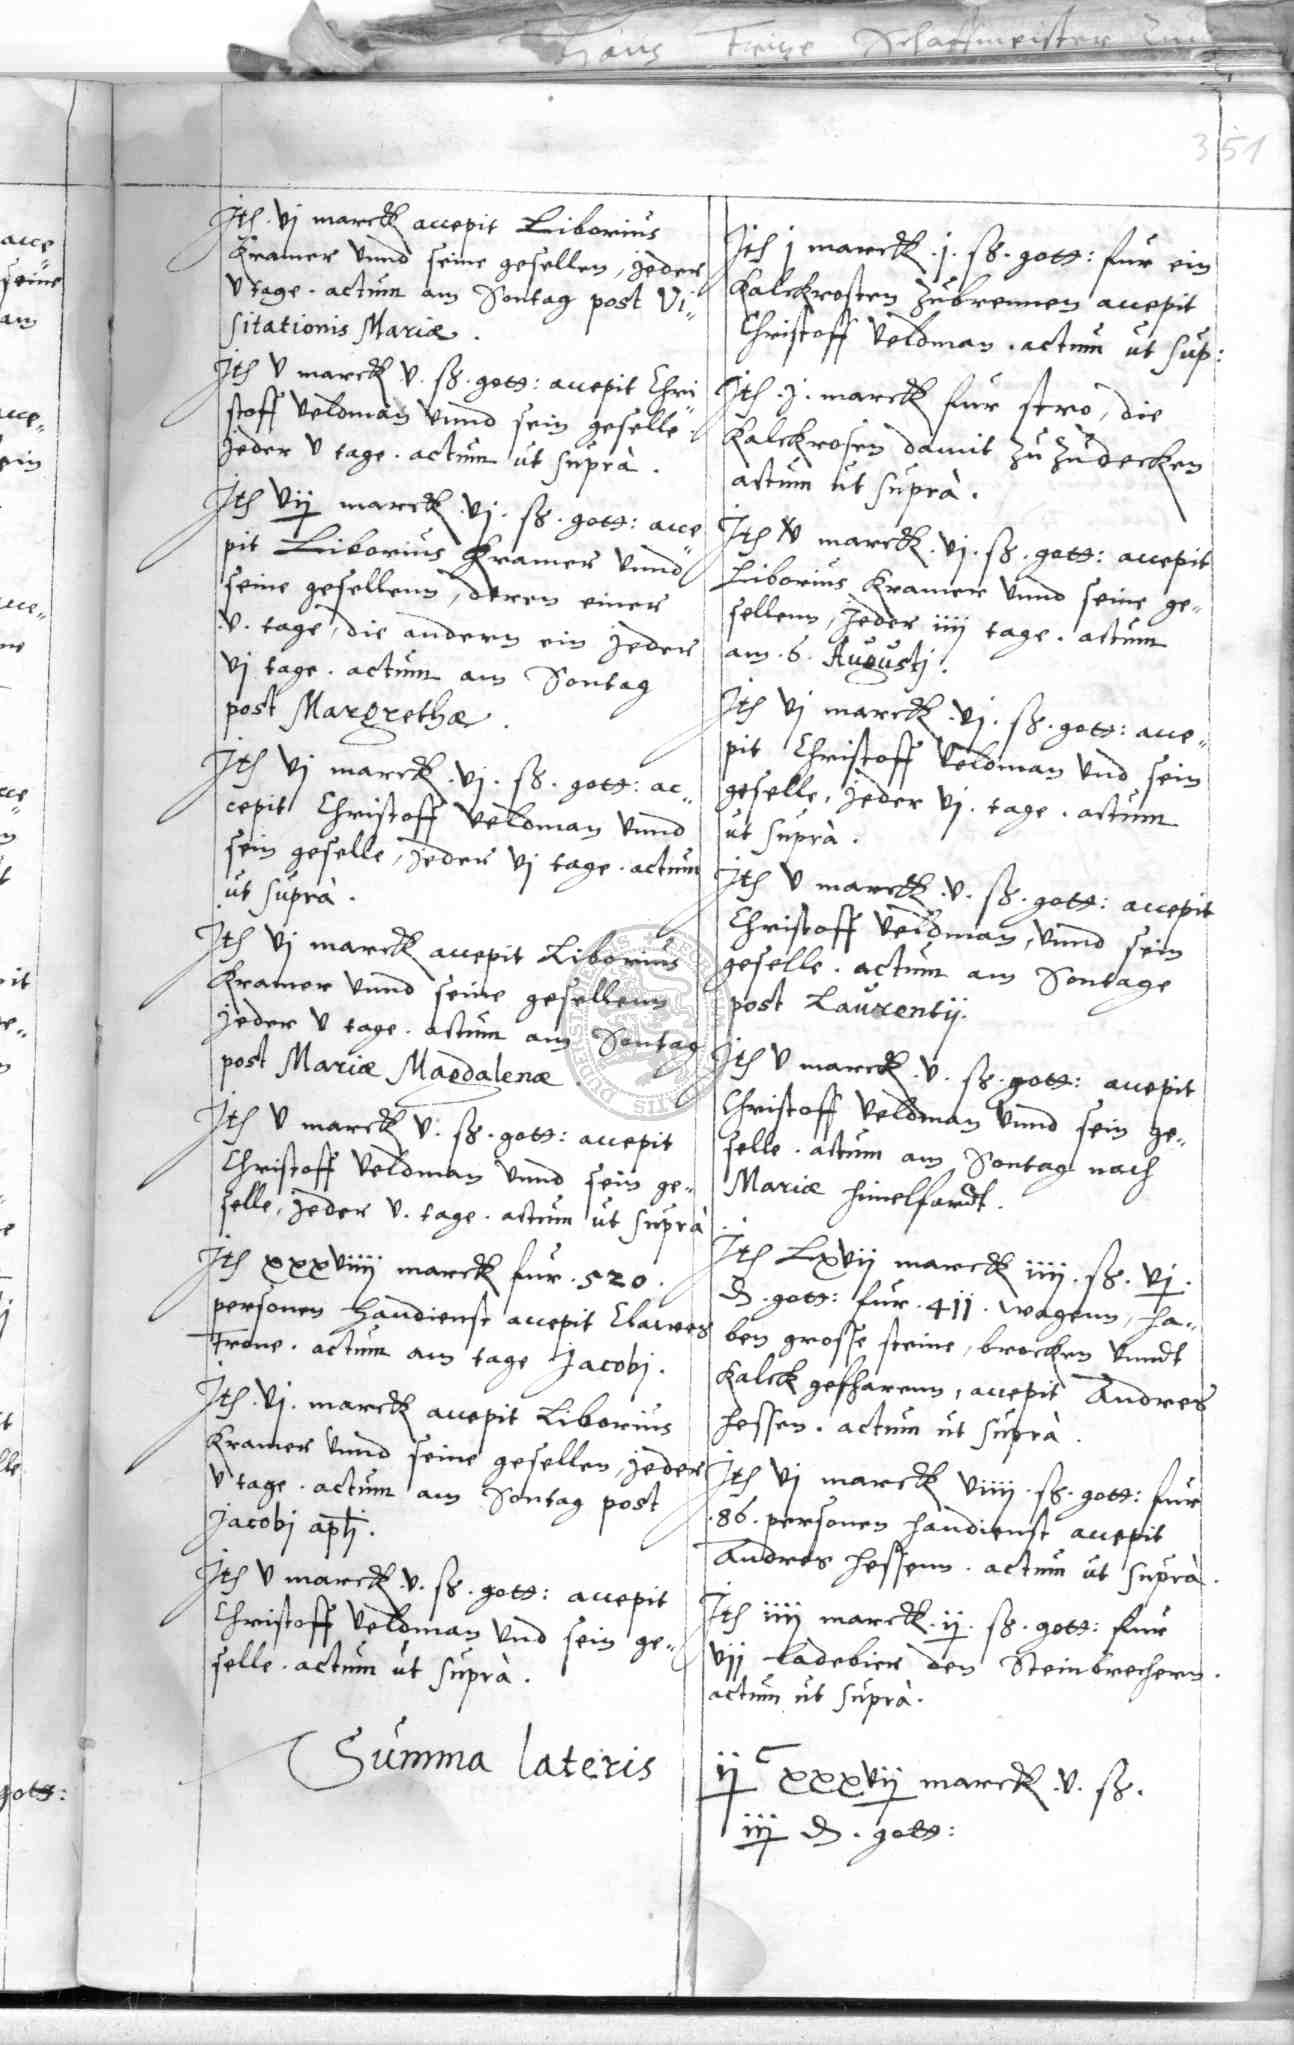 Hans Freise Schaffmeister
351
Ith vj marck accepit Liborius
Kramer vnnd seine gesellen, jeder
v tage. actum am Sontag post Vi„
sitationis Mariæ.
Ith v marck .v. sß. gott: accepit Chri„
stoff Veldman vnnd sein geselle.
jeder v tage. actum ut suprà.
Ith vij marck .vj. sß. gott: acce„
pit Liborius Kramer vnnd
seine gesellenn, deren einer
.v. tage, die andern ein jeder
vj tage. actum am Sontag
post Margrethæ.
Ith vj marck .vj. sß. gott: ac„
cepit Christoff Veldman vnnd
sein geselle, jeder vj tage. actum
ut suprà.
Ith vj marck accepit Liborius
Kramer vnnd seine gesellenn
jeder v tage. actum am Sontag
post Mariæ Magdalenæ.
Ith v marck v. sß. gott: accepit
Christoff Veldman vnnd sein ge„
selle, jeder v. tage. actum ut suprà
Ith xxxviiij marck fur .520.
personen handienst accepit Clawes
Trone. actum am tage Jacobj.
Ith .vj. marck accepit Liborius
Kramer vnnd seine gesellen, jeder
v tage. actum am Sontag post
Jacobj aptj.
Ith v marck .v. sß. gott: accepit
Christoff Veldman vnd sein ge„
selle. actum ut suprà.
Summa lateris
Ith j marck .j. sß. gott: fur ein
Kalckrosten zubrennen accepit
Christoff Veldman. actum ut sup:
Ith .j. marck fur stro, die
Kalckrosen damit zu zudecken
actum ut suprà.
Ith iv marck .vj. sß. gott: accepit
Liborius Kramer vnnd seine ge„
sellenn, jeder iiij tage. actum
am .6. Augustj.
Ith vj marck .vj. sß. gott: acce„
pit Christoff Veldman vnd sein
geselle, jeder vj. tage. actum
ut suprà.
Ith v marck .v. sß. gott: accepit
Christoff Veldman, vnnd sein
geselle. actum am Sontage
post Laurentij.
Ith v marck .v. sß. gott: accepit
Christoff Veldman vnnd sein ge„
selle. actum am Sontag nach
Mariæ himelfardt.
Ith Lxvij marck iiij. sß. vj.
₰. gott: fur .411. wagenn, ha„
ben grosse steine, brocken vnndt
Kalck gefharenn, accepit Andres
Hessen. actum ut suprà.
Ith vj marck viiij. sß. gott: fur
.86. personen handienst accepit
Andres Hessenn. actum ut suprà.
Ith iiij marck .ij. sß. gott: fur
vij ladebier den Steinbrechern.
actum ut suprà.
ij C xxxvij marck .v. sß.
iij ₰. gott: